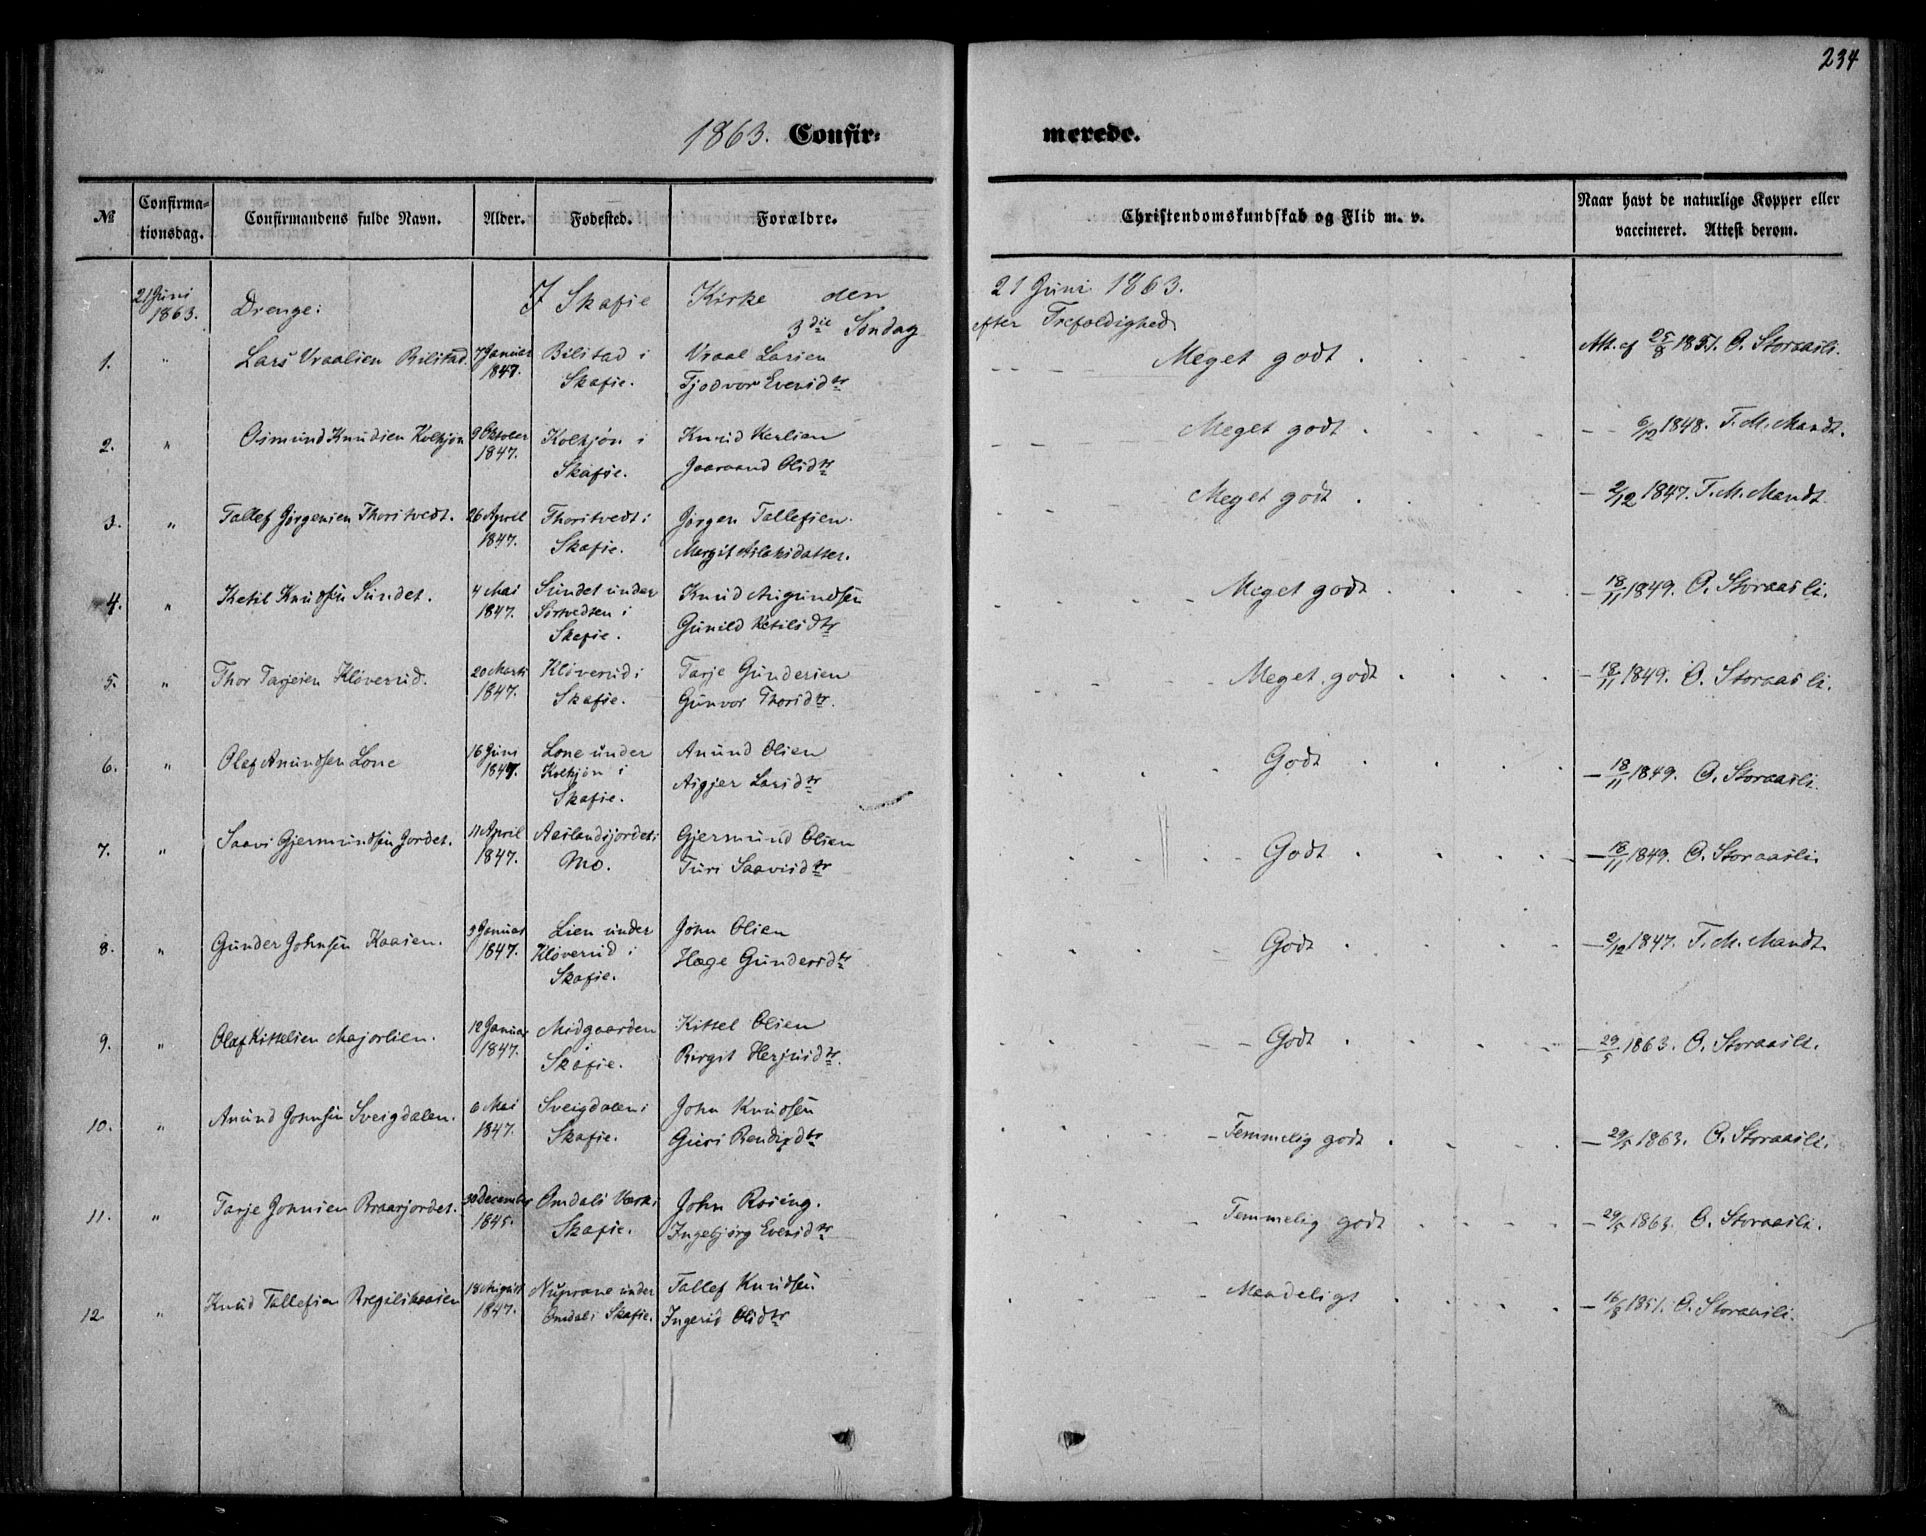 234
1863. Confir: merede.
№ Confirma-tionsdag. Confirmandens fulde Navn. Alder. Fødested. Forældre. Christendomskundskab og Flid m. v. Naar havt de naturlige Kopper eller vaccineret. Attest derom.
21 Juni 1863. Drenge: I Skafse Kirke den 21 Juni 1863.
3die Søndag efter Trefoldighed
1. " Lars Vraalsen Bilstad. 7 Januar 1847. Bilstad i Skafse. Vraal Larsen Tjodvor Evensdtr Meget godt Att. af 25/8 1851. O. Storaasli.
2. " Osmund Knudsen Kolkjøn 9 Oktober 1847. Kolkjøn i Skafse. Knud Jaaraand Olsdtr Meget godt – 6/12 1848. T. M. Mandt.
3. " Tallef Jørgensen Thorstvedt. 26 April 1847. Thorstvedt i Skafse. Jørgen Tallefsen. Margit Aslaksdatter. Meget godt – 2/12 1847. T. M. Mandt
4. " Ketil Knudsen Sundet. 4 Mai 1847. Sundet under Sørtvedten i Skafse. Knud Aigundsen Gunild Ketilsdtr Meget godt – 18/11 1849. O. Storaasli.
5. " Thor Tarjesen Kløverud. 20 Marts 1847. Kløverud i Skafse. Tarje Gundersen Gunvor Thorsdtr. Meget godt – 18/11 1849. O. Storaasli.
6. " Olaf Anundsen Lone 16 Juni 1847. Lone under Kolkjøn i Skafse. Anund Olsen Aigjer Larsdtr Godt – 18/11 1849. O. Storaasli.
7. " Saavi Gjermundsen Jordet. 11 April 1847. Aaslandsjordet i Mo. Gjermund Olsen Turi Saavisdtr Godt – 18/11 1849. O. Storaasli.
8. " Gunder Johnsen Kaasen. 3 Januar 1847. Lien under Kløverud i Skafse. John Olsen Hæge Gundersdtr Godt – 2/12 1847. T. M. Mandt.
9. " Olaf Kittelsen Majorlien. 12 Januar 1847. Midgaarden i Skafse. Kittel Olsen Birgit Herjusdtr. Godt – 29/5 1863. O. Storaasli.
10. " Anund Johnsen Sveigdalen. 6 Mai 1847. Sveigdalen i Skafse. John Knudsen Guri Bendixdtr Temmelig godt – 29/5 1863. O. Storaasli.
11. " Tarje Johnsen Braarjordet. 30 December 1845. Omdals Værk i Skafse. John Rosing. Ingebjørg Evensdtr Temmelig godt – 29/5 1863. O. Storaasli.
12 " Knud Tallefsen 18 August 1847. under Omdal i Skafse. Tallef Knudsen Ingerid Olsdtr Maadeligt – 16/8 1851. O. Storaasli.